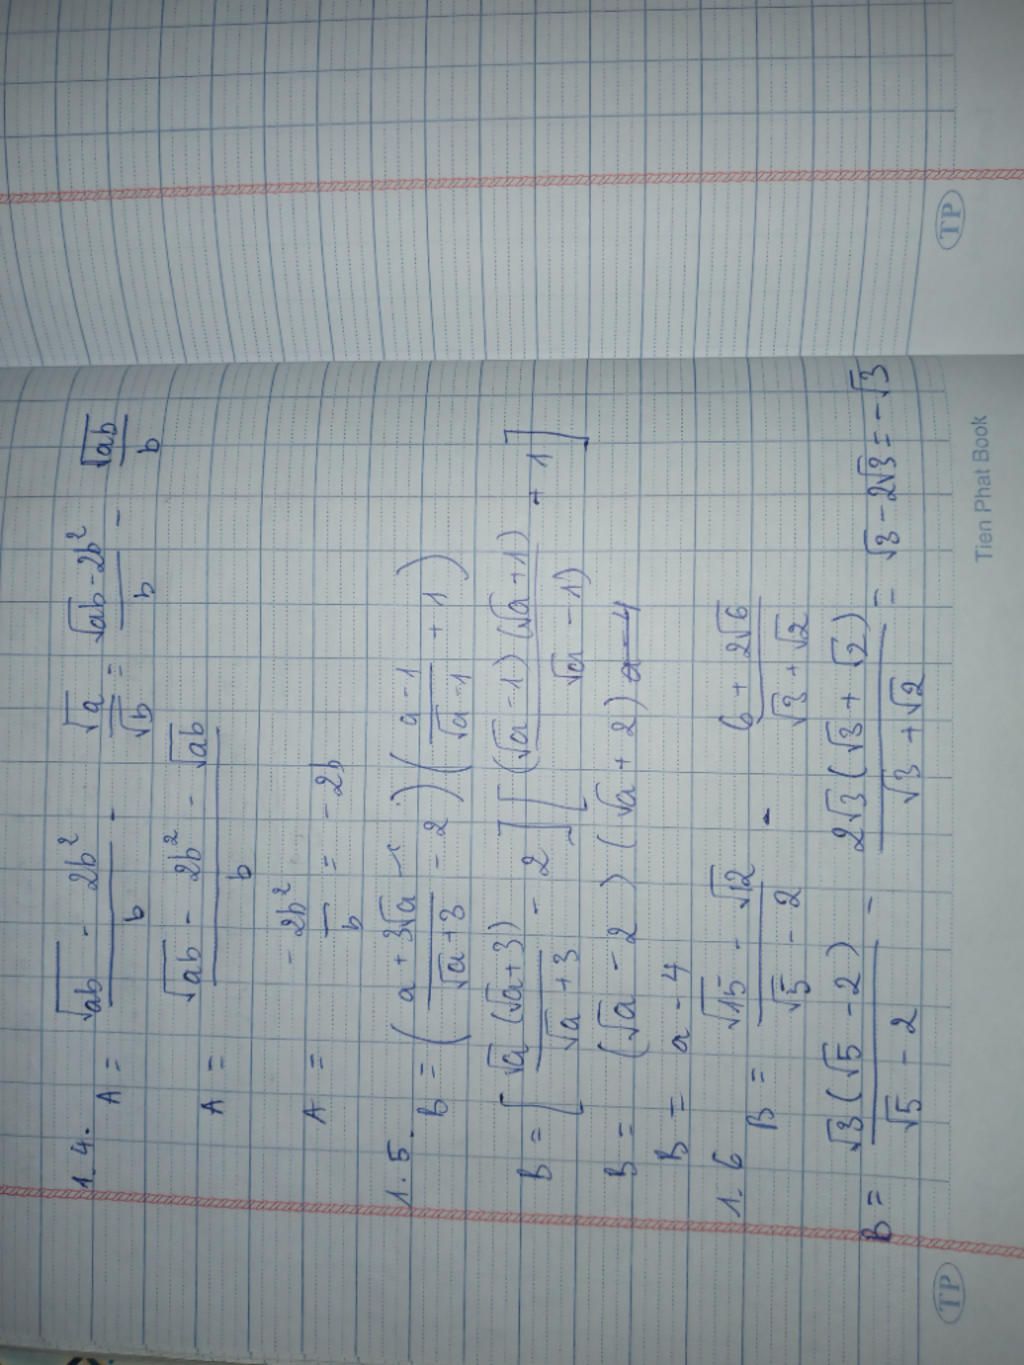 1.4.
A = (√ab - 2b²)/b - √a/√b = (√ab - 2b²)/b - √ab/b
A = (√ab - 2b² - √ab)/b
A = -2b²/b = -2b
1.5.
B = ((a + 3√a)/(√a + 3) - 2)((a - 1)/(√a - 1) + 1)
B = [√a(√a + 3)/(√a + 3) - 2][(√a - 1)(√a + 1)/(√a - 1) + 1]
B = (√a - 2)(√a + 2) a - 4
B = a - 4
1.6
B = (√15 - √12)/(√5 - 2) - (6 + 2√6)/(√3 + √2)
B = √3(√5 - 2)/(√5 - 2) - 2√3(√3 + √2)/(√3 + √2) = √3 - 2√3 = -√3
Tien Phat Book
TP
TP